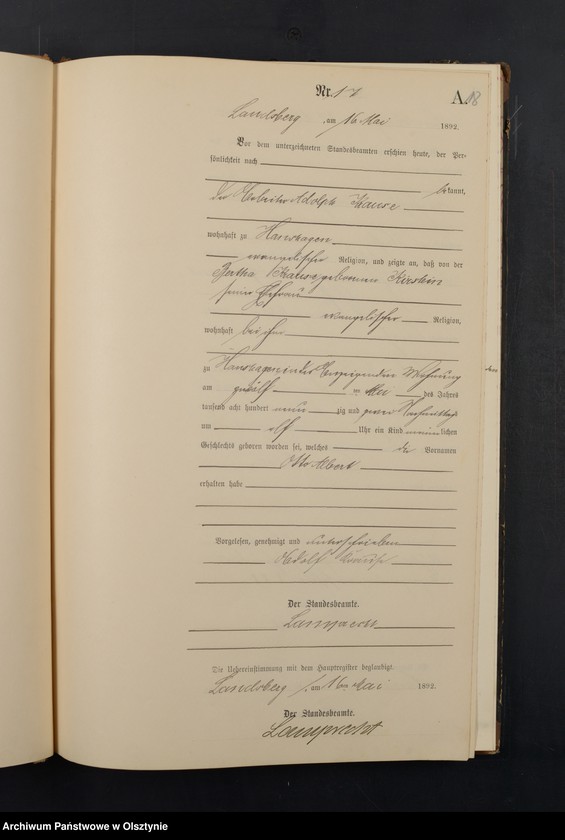 Nr. 17
A. 18
Landsberg, am 16 Mai 1892.
Vor dem unterzeichneten Standesbeamten erschien heute, der Per-
sönlichkeit nach
bekannt,
der Arbeiter Adolph Krause
wohnhaft zu Hanshagen
evangelischer Religion, und zeigte an, daß von der
Bertha Krause geborenen Kirstein
seiner Ehefrau
evangelischer Religion,
wohnhaft bei ihm
zu Hanshagen in der Wohnung
am zwölf ten Mai des Jahres
tausend acht hundert neun zig und zwei Nachmittags
um elf Uhr ein Kind männlichen
Geschlechts geboren worden sei, welches die Vornamen
Otto Albert
erhalten habe
Vorgelesen, genehmigt und unterschrieben
Adolf Krause
Der Standesbeamte.
Lamprecht
Die Uebereinstimmung mit dem Hauptregister beglaubigt.
Landsberg, am 16 Mai 1892.
Der Standesbeamte.
Lamprecht
Archiwum Państwowe w Olsztynie